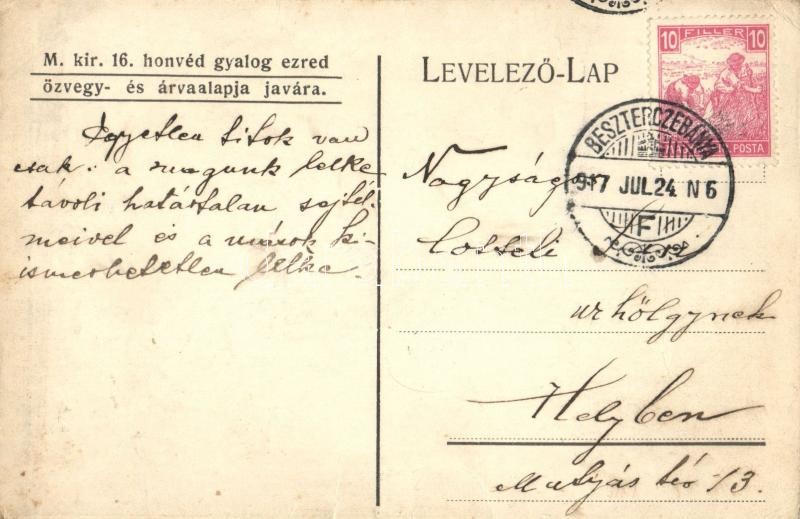 M. kir. 16. honvéd gyalog ezred
özvegy- és árvaalapja javára.
Egyetlen titok van
csak: a magunk lelke
távoli határtalan sejtel-
meivel és a mások ki-
ismerhetetlen lelke.
LEVELEZŐ-LAP
10 FILLER 10
POSTA
BESZTERCZEBÁNYA
917 JUL. 24. N 6
F
Nagyságos
urhölgynek
Helyben
Mátyás tér 13.